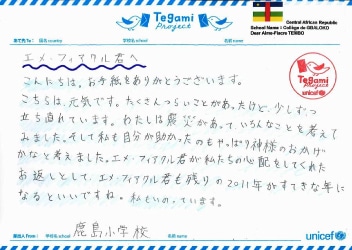 Tegami
Project
Central African Republic
School Name : Collège de GBALOKO
Dear Aime-Fiacre TEMBO
あて先 To : 国名 country 学校名 school 名前 name
エメ・フィアクル君へ
こんにちは。お手紙をありがとうございます。
こちらは、元気です。たくさんつらいことがあったけど、少しずつ
立ち直れています。わたしは震災があって、いろんなことを考えて
みました。そして私も自分が助かったのもやっぱり神様のおかげ
かなと考えました。エメ・フィアクル君が私たちの心配をしてくれた
お返しとして、エメ・フィアクル君も残りの2011年がすてきな年に
なるといいですね。私もいのっています。
Tegami
Project
unicef
差出人 From : 学校名 school 名前 name
鹿島小学校
unicef